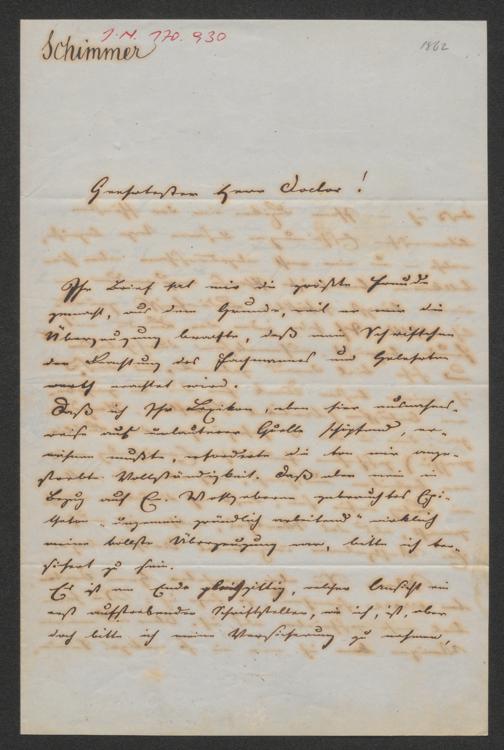 Schimmer
J.N. 170.930
1862
Geehrtester Herr Doctor!
Ihr Brief hat mir die größte Freude
gemacht, aus dem Grunde, weil er mir die
Überzeugung brachte, daß mein Schriftchen
der Beachtung des Fachmannes und Gelehrten
werth erachtet wird.
Daß ich Ihr Lexikon, eben hier ausnahms-
weise auf unlauterer Quelle schöpfend, er-
wähnen mußte, erforderte die von mir ange-
strebte Vollständigkeit. Daß aber mein in
Bezug auf E. Wohlgeboren gebrauchtes Epi-
theton „ungemein gründlich arbeitend" wirklich
meine vollste Überzeugung war, bitte ich ver-
sichert zu sein.
Es ist am Ende gleichgiltig, welcher Ansicht ein
erst aufstrebender Schriftsteller, wie ich, ist, aber
doch bitte ich meine Versicherung zu nehmen,